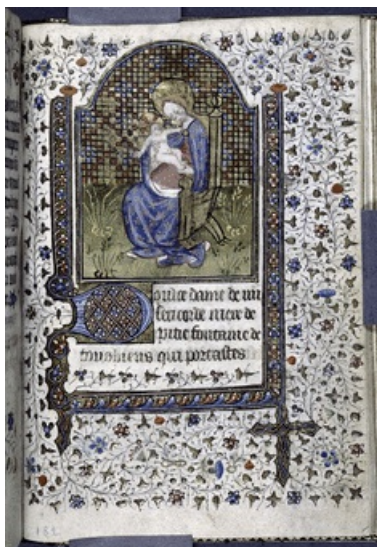 Doulce dame de mi
sericorde mere de
pitie fontaine de
tous biens qui portastes
182